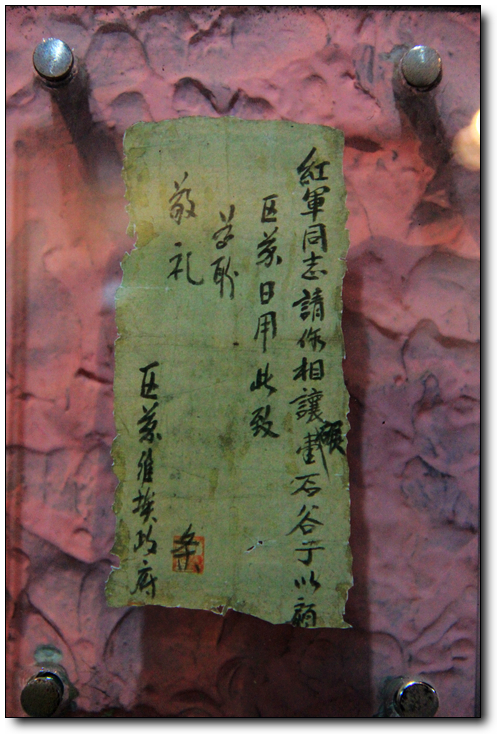 紅軍同志請你相讓石谷子以顧
区蘇日用此致
盼
敬礼
条
区蘇維埃政府